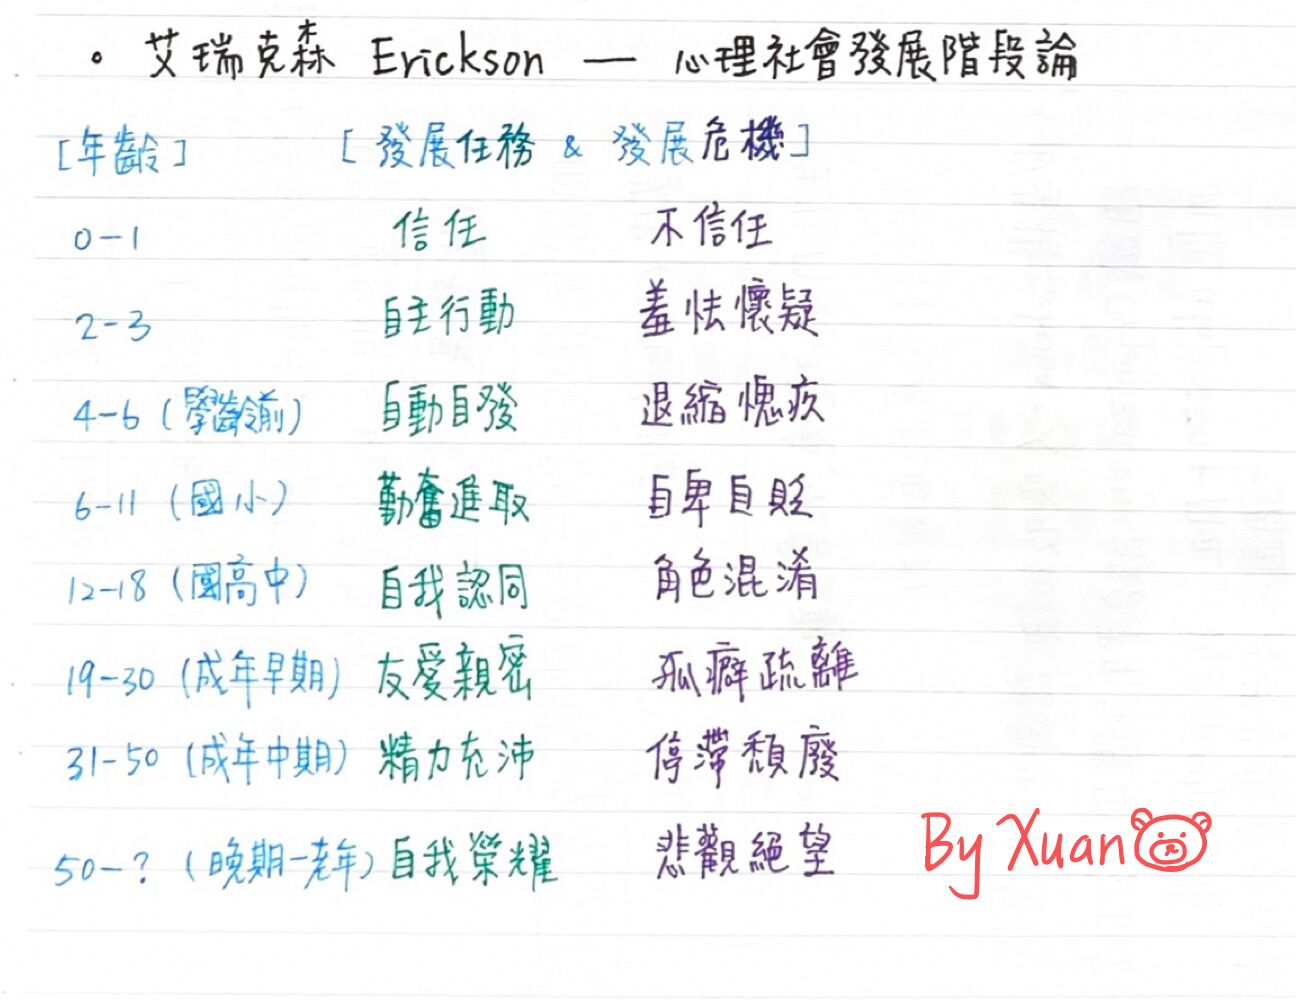 • 艾瑞克森 Erickson — 心理社會發展階段論
[年齡] [發展任務 & 發展危機]
0-1 信任 不信任
2-3 自主行動 羞怯懷疑
4-6 (學齡前) 自動自發 退縮愧疚
6-11 (國小) 勤奮進取 自卑自貶
12-18 (國高中) 自我認同 角色混淆
19-30 (成年早期) 友愛親密 孤癖疏離
31-50 (成年中期) 精力充沛 停滯頹廢
50-? (晚期-老年) 自我榮耀 悲觀絕望
By Xuan